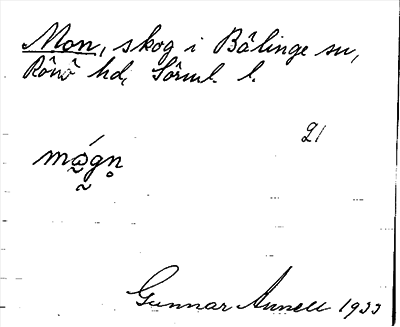 Mon, skog i Bälinge sn,
Rönö hd, Sörml. l.
21
Gunnar Annell 1933